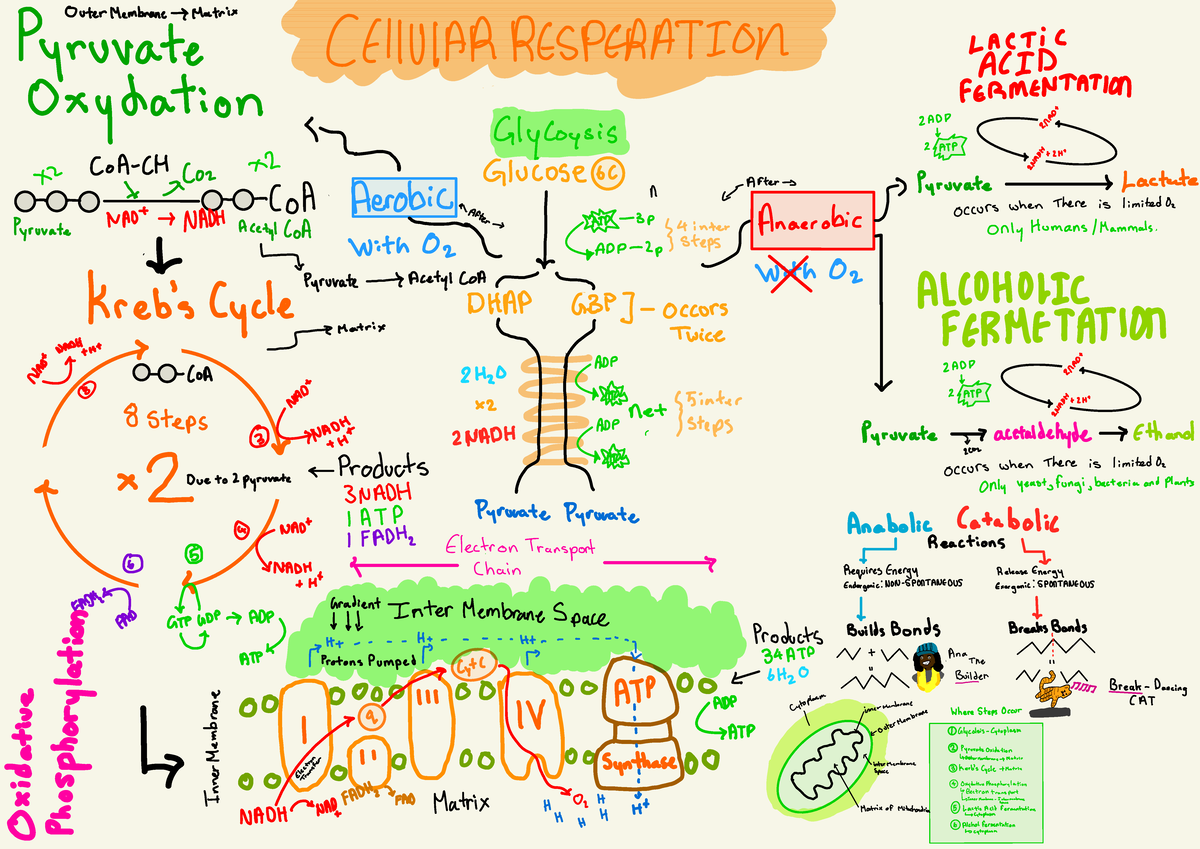 Outer Membrane → Matrix
Pyruvate
Oxydation
CELLULAR RESPERATION
×2
CoA-CH
CO2
×2
CoA
Pyruvate
NAD+ → NADH
Acetyl CoA
Pyruvate → Acetyl CoA
Aerobic
with O2
After
Glycoysis
Glucose 6C
n
3P
ADP-2p
4 inter
steps
After
Anaerobic
with O2
DHAP
G3P
- Occors
Twice
2H2O
×2
2 NADH
ADP
ADP
net
5 inter
steps
Pyruvate Pyruvate
LACTIC
ACID
FERMENTATION
2 ADP
2 ATP
2NAD+
2NADH + 2H+
Pyruvate → Lactate
Occurs when There is limited O2
Only Humans/Mammals.
ALCOHOLIC
FERMETATION
2 ADP
2 ATP
2NAD+
2NADH + 2H+
Pyruvate → acetaldehyde → Ethanol
Occurs when There is limited O2
Only yeast, fungi, bacteria and Plants
Kreb's Cycle
Matrix
NAD+
NADH
+ H+
8
CoA
8 Steps
×2
Due to 2 pyruvate
3
NAD+
NADH
+ H+
← Products
3 NADH
1 ATP
1 FADH2
4
NAD+
NADH
+ H+
5
GTP GDP → ADP
ATP
6
FADH2
FAD
Oxidative
Phosphorylation
Electron Transport
Chain
Gradient
Inter Membrane Space
H+
H+
H+
H+
Protons Pumped
Inner Membrane
I
Q
II
III
Cyt C
IV
ATP
Synthase
Electron Transfer
NADH
NAD+
FADH2
FAD
Matrix
O2
H
H
H
H
H
H+
Products
34 ATP
6H2O
ADP
ATP
Anabolic
Catabolic
Reactions
Requires Energy
Endergonic: NON-SPONTANEOUS
Release Energy
Exergonic: SPONTANEOUS
Builds Bonds
Breaks Bonds
+
=
=
Ana
The
Builder
Break-Dancing
CAT
Cytoplasm
inner Membrane
Outer Membrane
Inter Membrane
Space
Matrix of Mitochondria
Where Steps Occur
1 Glycolsis - Cytoplasm
2 Pyruvate Oxidation
3 Kreb's Cycle → Matrix
4 Oxydative Phosphorylation
Electron transport
5 Lactic Acid Fermentation
Cytoplasm
6 Alchol Fermentation
Cytoplasm